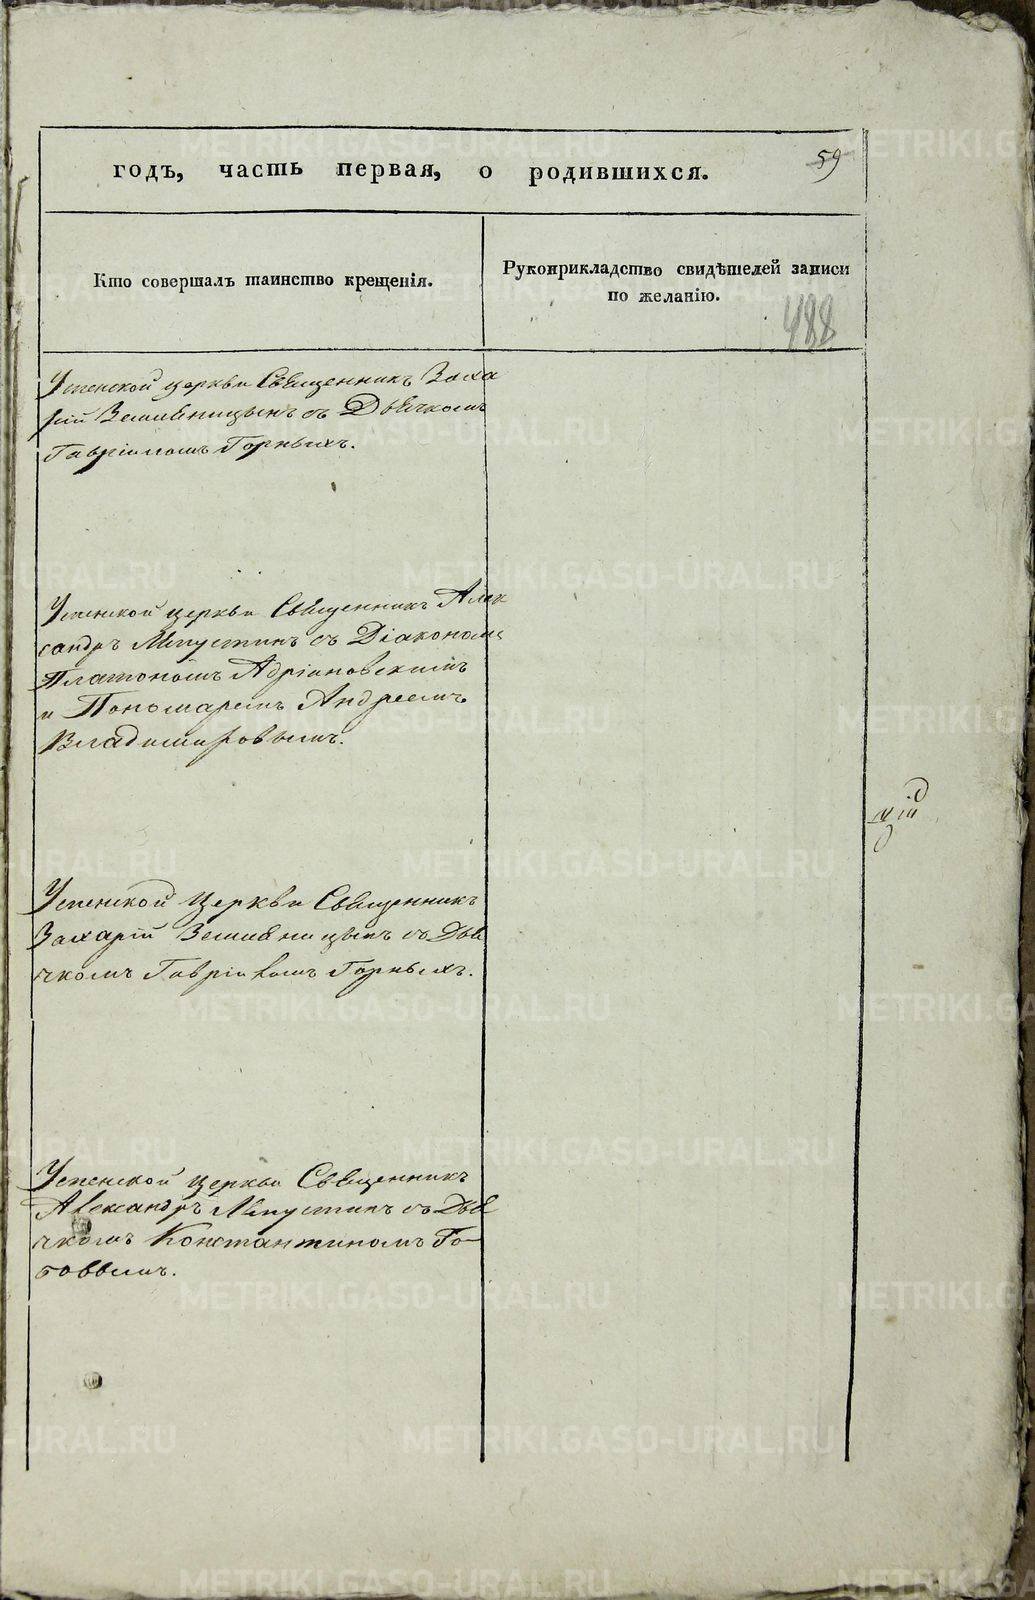 годъ, часть первая, о родившихся.
59
Кто совершалъ таинство крещенія.
Рукоприкладство свидѣтелей записи
по желанію.
488
Успенской церкви Священникъ Заха
рій Земляницынъ съ Дьячкомъ
Гавріиломъ Горныхъ.
Успенской церкви Священникъ Алек
сандръ съ Діакономъ
Платономъ Адріановскимъ
и Пономаремъ Андреемъ
Владимировымъ.
Успенской церкви Священникъ
Захарій Земляницынъ съ Дья
чкомъ Гавріиломъ Горныхъ.
Успенской церкви Священникъ
Александръ съ Дья
чкомъ Константиномъ
METRIKI.GASO-URAL.RU